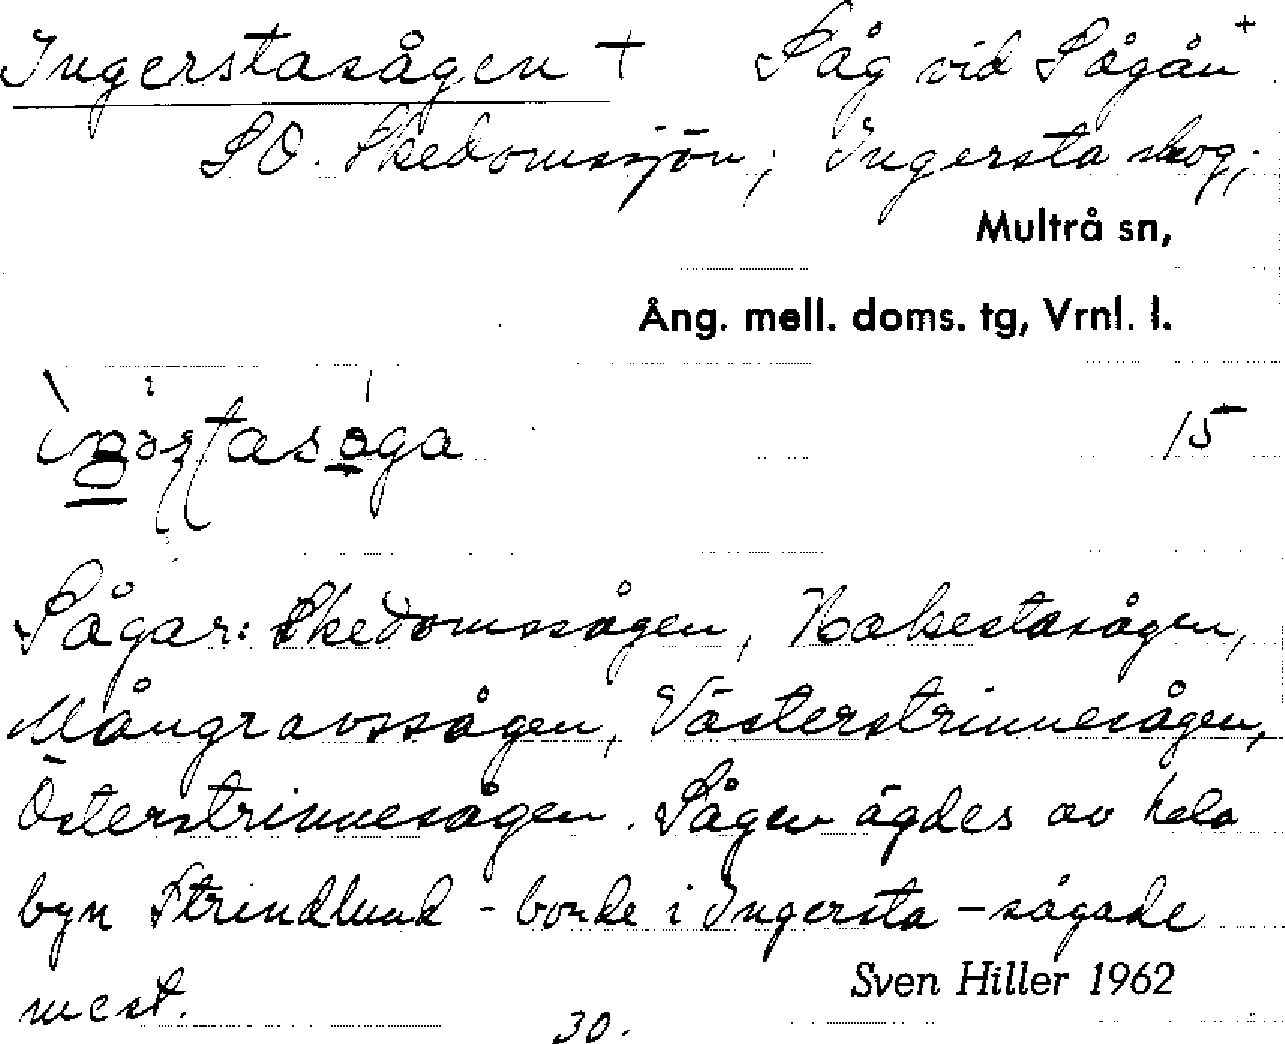 Ingerstasågen + Såg vid Sågån +
SO. Skedomssjön; Ingersta skog;
Multrå sn,
Ång. mell. doms. tg, Vrnl. l.
15
Sågar: Skedomssågen, Näksestasågen,
Mångravssågen, Västerstrinnesågen,
Österstrinnesågen. Sågen ägdes av hela
byn Strindlund - bonde i Ingersta - sågade
mest.
Sven Hiller 1962
30.